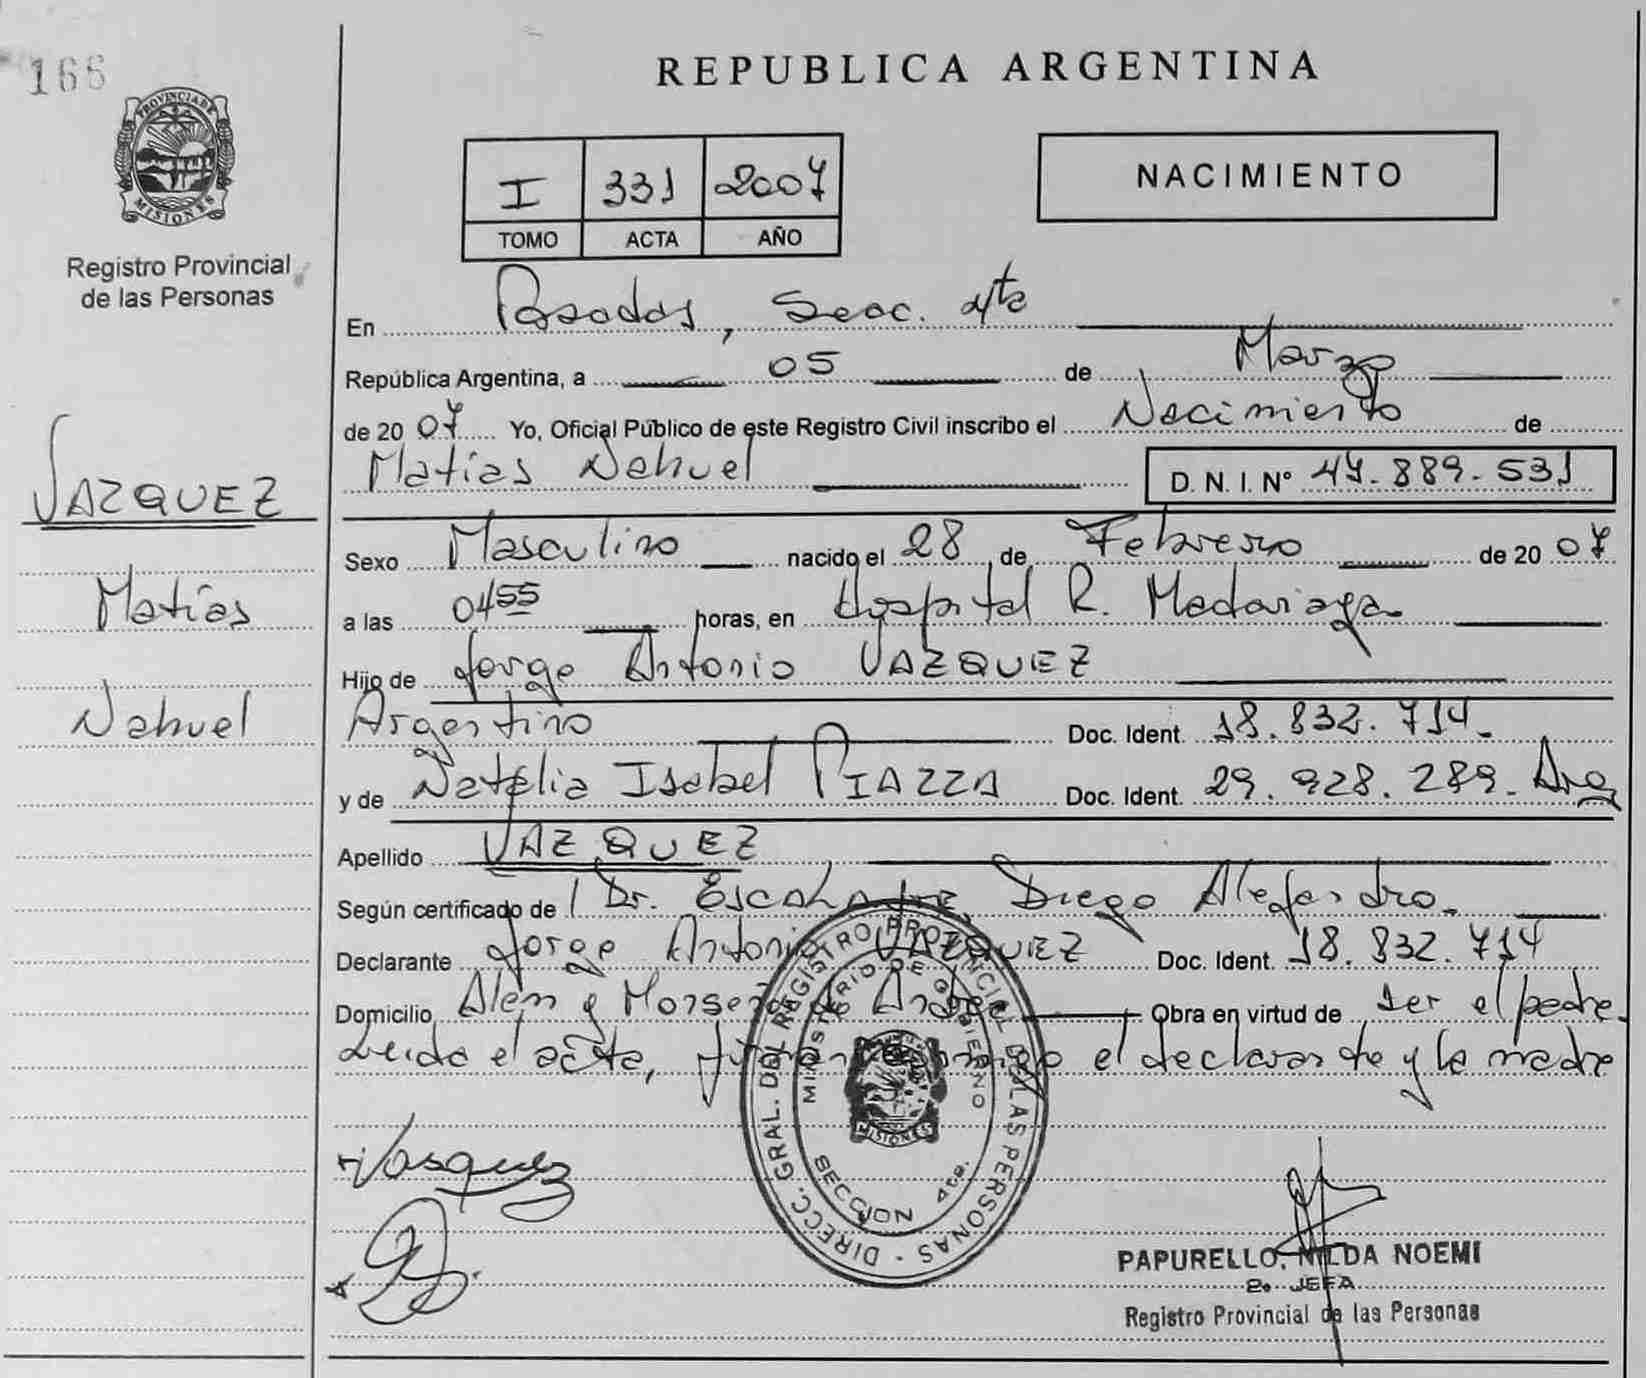 166
PROVINCIA DE
MISIONES
Registro Provincial
de las Personas
VAZQUEZ
Matías
Nahuel
REPUBLICA ARGENTINA
I 331 2007
TOMO ACTA AÑO
NACIMIENTO
En Posadas, Secc. 4ta
República Argentina, a 05 de Marzo
de 2007 Yo, Oficial Público de este Registro Civil inscribo el Nacimiento de
Matías Nahuel D. N. I. Nº 47.889.531
Sexo Masculino nacido el 28 de Febrero de 2007
a las 0455 horas, en Hospital R. Madariaga
Hijo de Jorge Antonio VAZQUEZ
Argentino Doc. Ident. 18.832.714.
y de Natalia Isabel PIAZZA Doc. Ident. 29.928.289. Arg
Apellido VAZQUEZ
Según certificado de Dr. Escalante, Diego Alejandro.
Declarante Jorge Antonio VAZQUEZ Doc. Ident. 18.832.714
Domicilio Alem y Obra en virtud de ser el padre.
Leida el acta, el declarante y la madre
Vasquez
DIRECC. GRAL. DEL REGISTRO PROVINCIAL DE LAS PERSONAS
MINISTERIO DE GOBIERNO
MISIONES
SECCION 4ta.
PAPURELLO, NILDA NOEMI
2o. JEFA
Registro Provincial de las Personas